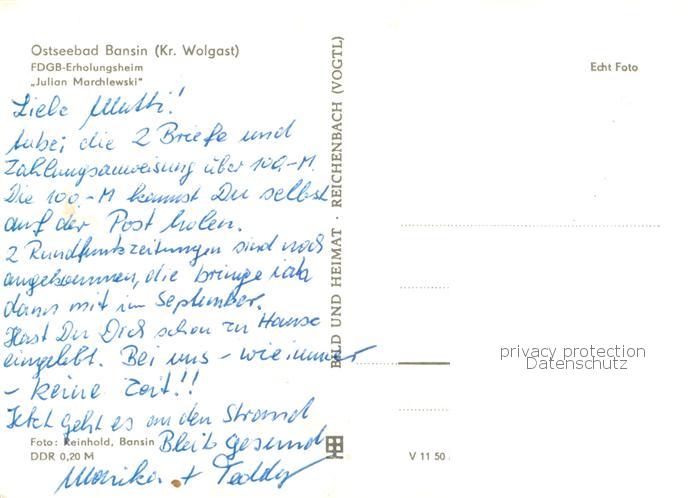 Ostseebad Bansin (Kr. Wolgast)
FDGB-Erholungsheim
„Julian Marchlewski"
Liebe Mutti!
Anbei die 2 Briefe und
Zahlungsanweisung über 100,-M.
Die 100,-M kannst Du selbst
auf der Post holen.
2 Rundfunkzeitungen sind noch
angekommen, die bringe ich
dann mit im September.
Hast Du Dich schon zu Hause
eingelebt. Bei uns - wie immer
- keine Zeit!!
Jetzt geht es an den Strand
Bleib gesund
Monika + Teddy
Foto: Reinhold, Bansin
DDR 0,20 M
BILD UND HEIMAT · REICHENBACH (VOGTL)
Echt Foto
privacy protection
Datenschutz
V 11 50